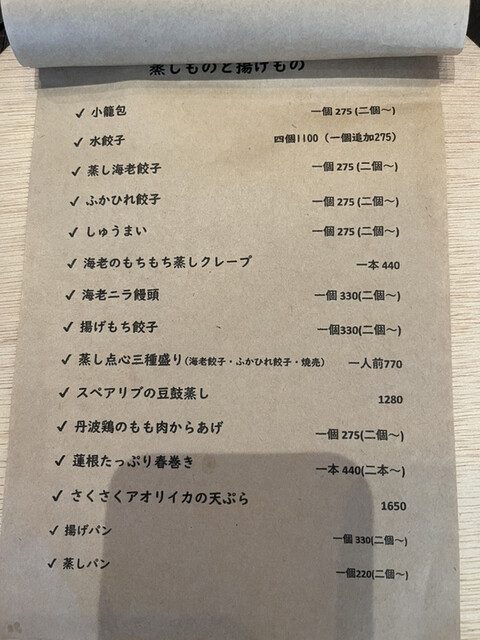 蒸しものと揚げもの
✓ 小籠包 一個 275 (二個〜)
✓ 水餃子 四個1100（一個追加275）
✓ 蒸し海老餃子 一個 275 (二個〜)
✓ ふかひれ餃子 一個 275 (二個〜)
✓ しゅうまい 一個 275 (二個〜)
✓ 海老のもちもち蒸しクレープ 一本 440
✓ 海老ニラ饅頭 一個 330(二個〜)
✓ 揚げもち餃子 一個330(二個〜)
✓ 蒸し点心三種盛り(海老餃子・ふかひれ餃子・焼売) 一人前770
✓ スペアリブの豆鼓蒸し 1280
✓ 丹波鶏のもも肉からあげ 一個 275(二個〜)
✓ 蓮根たっぷり春巻き 一本 440(二本〜)
✓ さくさくアオリイカの天ぷら 1650
✓ 揚げパン 一個 330(二個〜)
✓ 蒸しパン 一個220(二個〜)